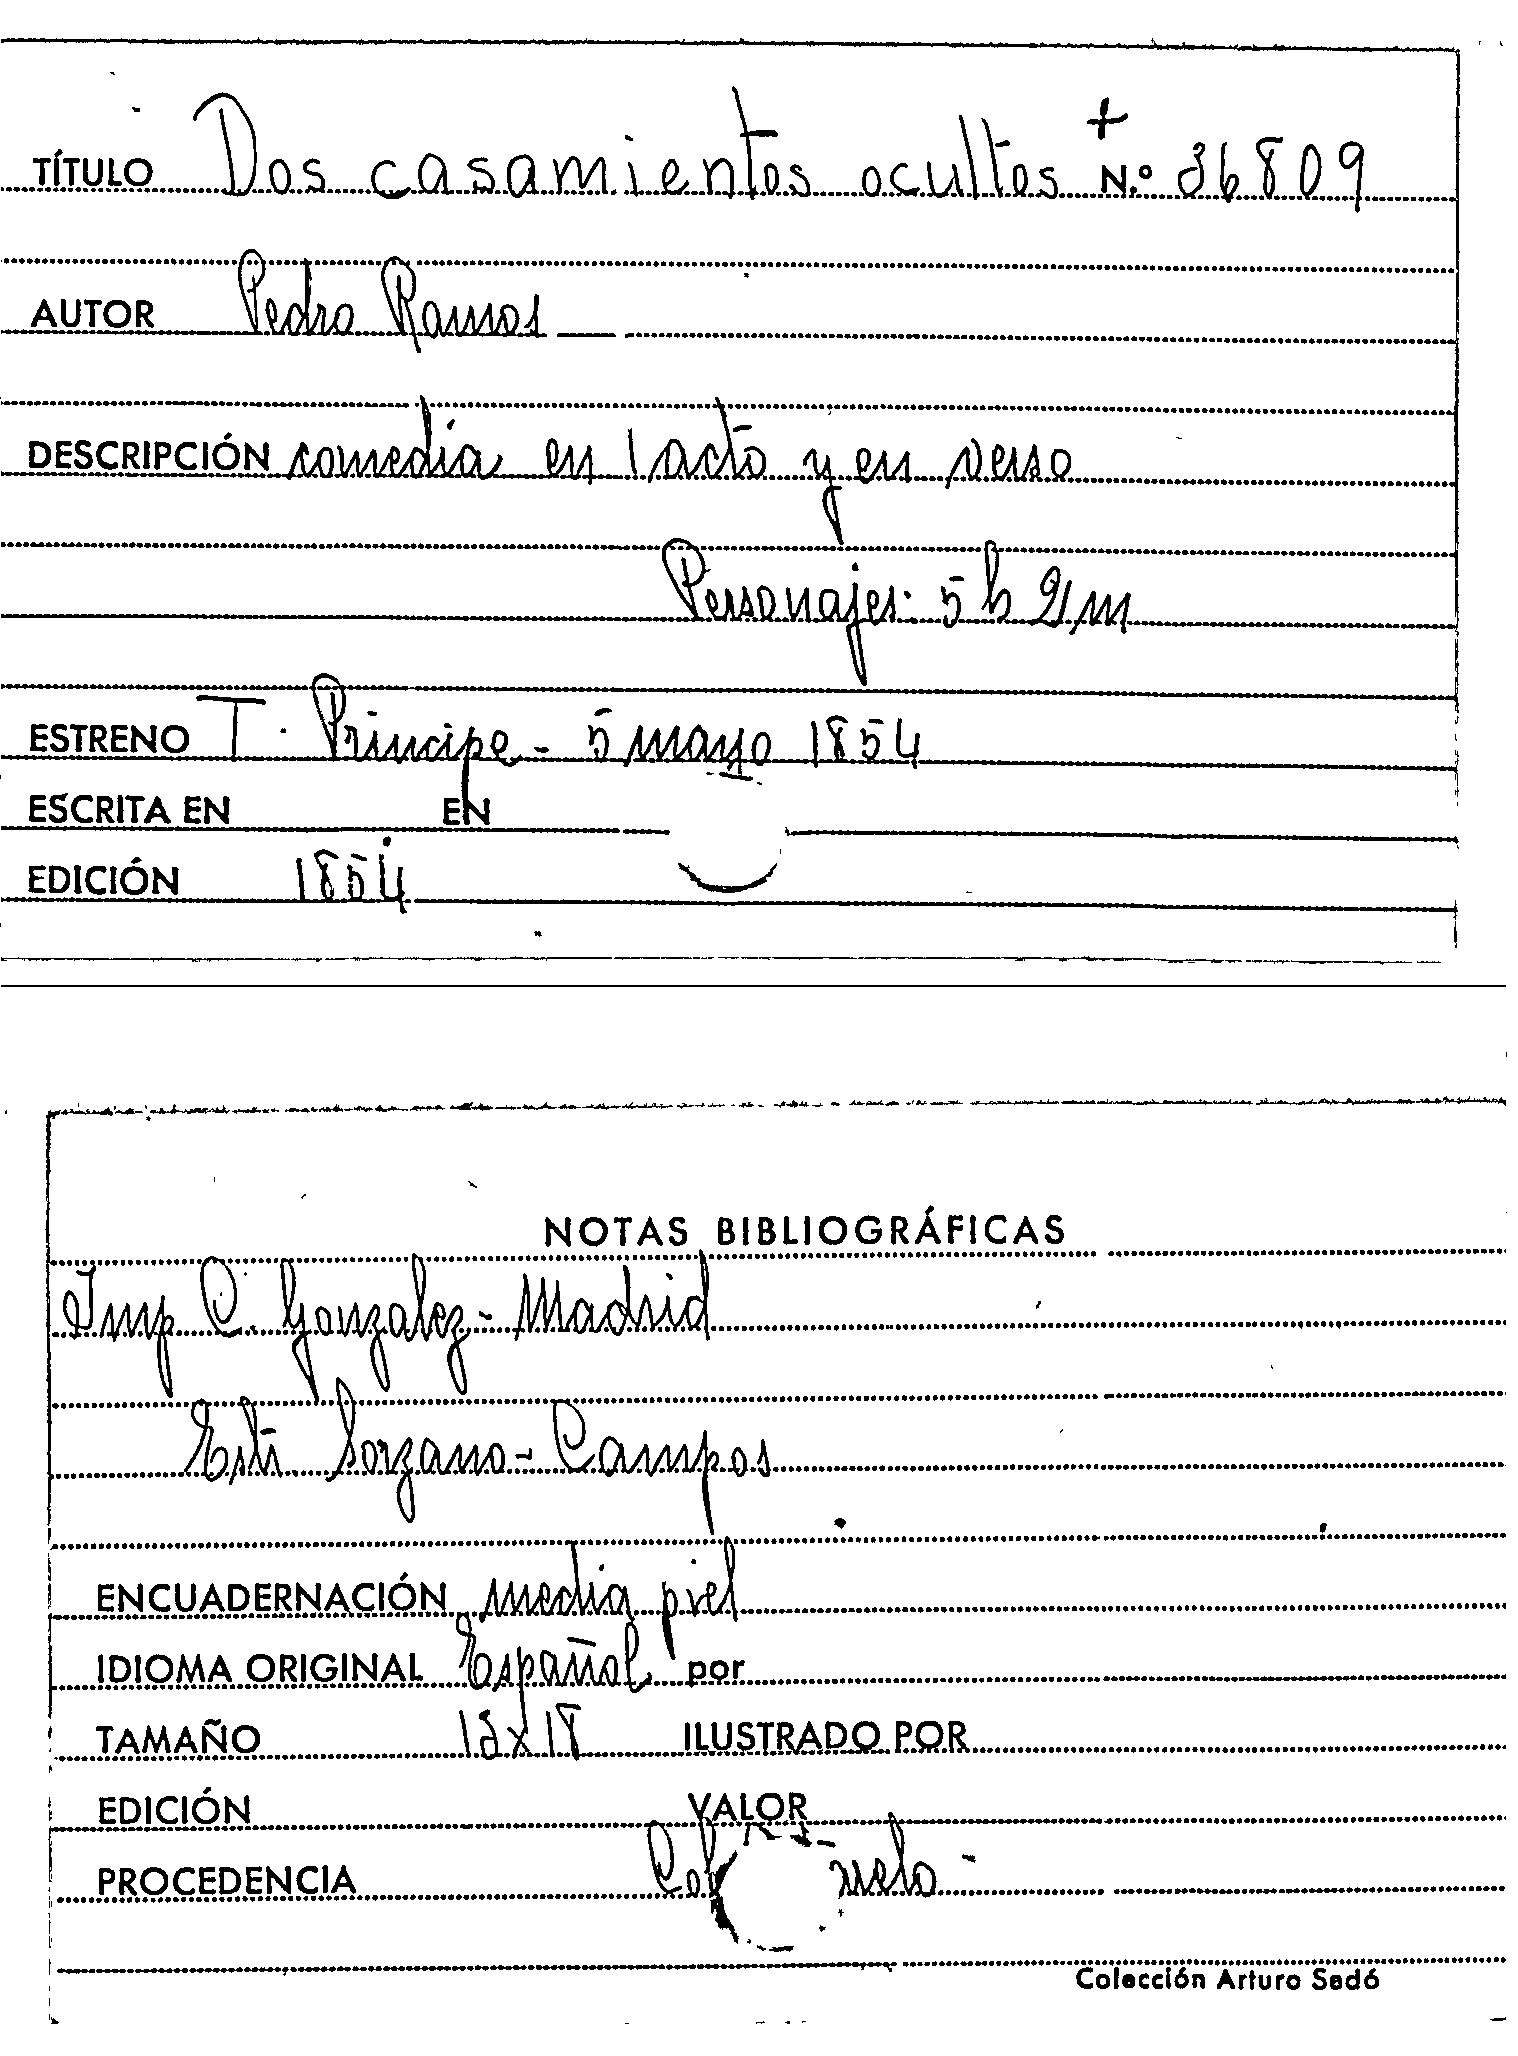 TÍTULO Dos casamientos ocultos + N.º 36809
AUTOR Pedro Ramos
DESCRIPCIÓN comedia en 1 acto y en verso
Personajes: 5 h 2 m
ESTRENO T. Príncipe - 5 mayo 1854
ESCRITA EN EN
EDICIÓN 1854
NOTAS BIBLIOGRÁFICAS
Imp C. Gonzalez - Madrid
Lozano - Campos
ENCUADERNACIÓN media piel
IDIOMA ORIGINAL Español por
TAMAÑO 13x18 ILUSTRADO POR
EDICIÓN VALOR
PROCEDENCIA
Colección Arturo Sedó